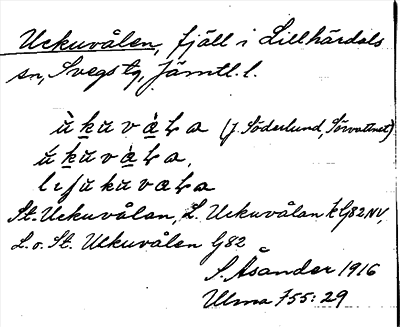 Uckuvålen, fjäll i Lillhärdals
sn, Svegs tg, Jämtl. l.
ŭkuvàła (J. Söderlund, Sörvattnet)
ŭkŭvàła,
ŭkŭvała
St. Uckuvålan, L. Uckuvålan k G82NV,
L. o. St. Uckuvålen G82
S. Åsander 1916
Ulma 755:29